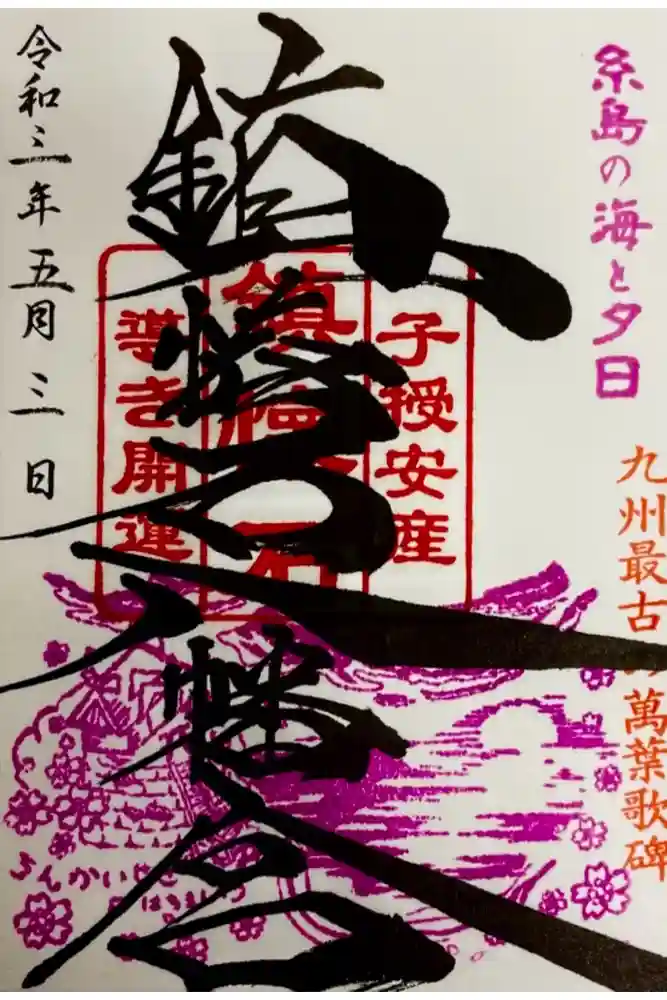 糸島の海と夕日
九州最古の萬葉歌碑
子授安産
鎮懐石
導き開運
鎮懐石八幡宮
令和三年五月三日
ちんかいせき